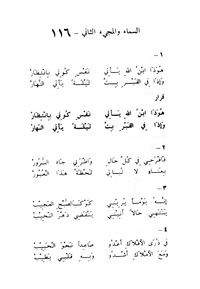 السماء والمجيء الثاني - ١١٦
١ -
هوذا ابن الله يأتي نفس كوني بانتظار
وإذا في القبر بت ليلة يأتي النهار
قرار
هوذا ابن الله يأتي نفس كوني بانتظار
وإذا في القبر بت ليلة يأتي النهار
٢ -
فافرحي في كل حال واطربي جاء السرور
بعناء لا تبالي لحظة هذا العبور
٣ -
إنه يوما يريني كوكب الصبح العجيب
ينتهي حالا أنيني ينقضي دهر النحيب
٤ -
في ذرى الأفلاك أغدو صاعدا نحو الحبيب
ومع الأملاك أشدو وبه قلبي يطيب